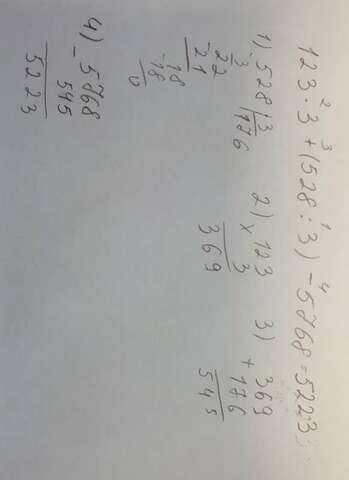 123 · 3 + (528 : 3) - 5768 = 5223
2 3 1 4
1) 528 | 3
- 3 176
22
- 21
18
- 18
0
2) × 123
3
369
3) + 369
176
545
4) - 5768
545
5223